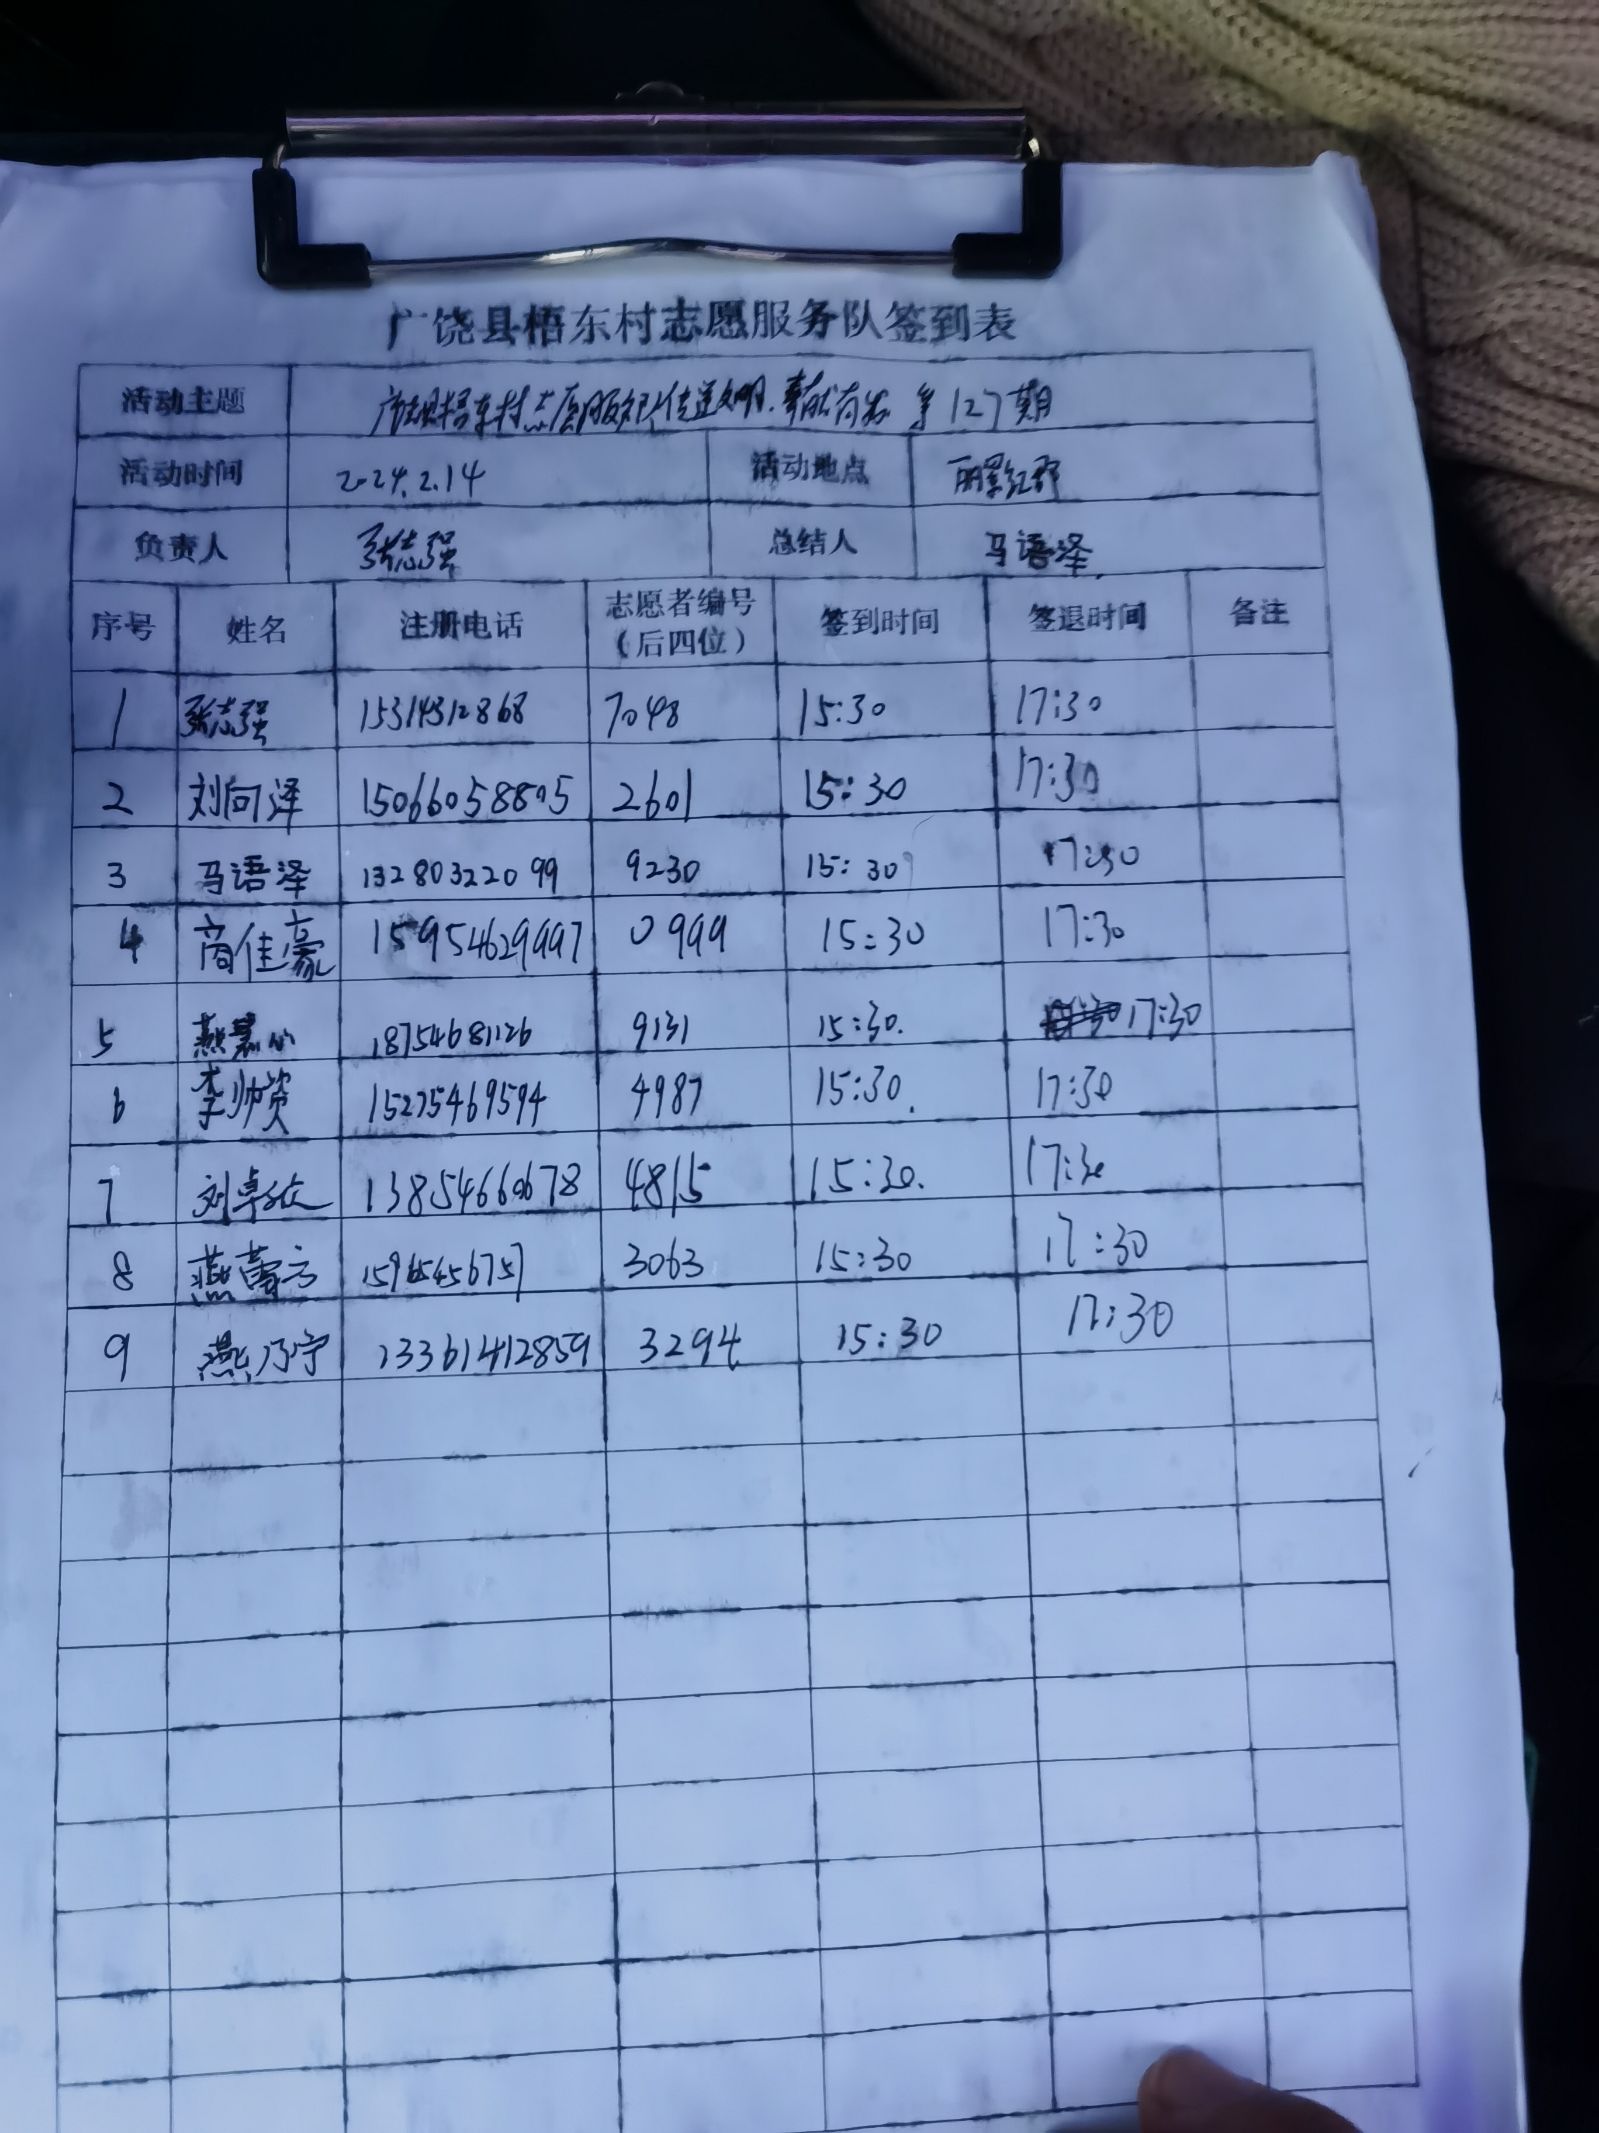 广饶县梧东村志愿服务队签到表
活动主题 广饶县梧东村志愿服务队传递文明.奉献有我 第127期
活动时间 2024.2.14 活动地点 丽景红郡
负责人 张志强 总结人 马语泽
序号 姓名 注册电话 志愿者编号（后四位） 签到时间 签退时间 备注
1 张志强 15314312868 7048 15:30 17:30
2 刘向泽 15066058805 2601 15:30 17:30
3 马语泽 13280322099 9230 15:30 17:30
4 商佳豪 15954629997 0999 15:30 17:30
5 燕慕 18754681126 9131 15:30. 17:30
6 李帅资 15275469594 4987 15:30. 17:30
7 刘卓欣 13854660678 4815 15:30. 17:30
8 燕 3063 15:30 17:30
9 燕乃宁 13361412859 3294 15:30 17:30